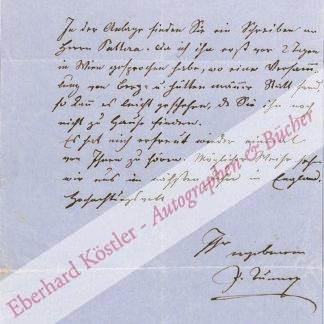 In der Anlage finden Sie ein Schreiben an
Herrn Pattera. Da ich ihn erst vor 2 Tagen
in Wien gesprochen habe, wo eine Versamm-
lung von Berg- u Hüttenmänner Statt fand,
so kann es leicht geschehen, daß Sie ihn noch
nicht zu Hause finden.
Es hat mich erfreut wieder einmal
von Ihnen zu hören. Möglicher Weise sehen
wir uns im nächsten Jahre in England.
Hochachtungsvoll
Ihr
ergebener
P. Tunner
Eberhard Köstler - Autographen & Bücher